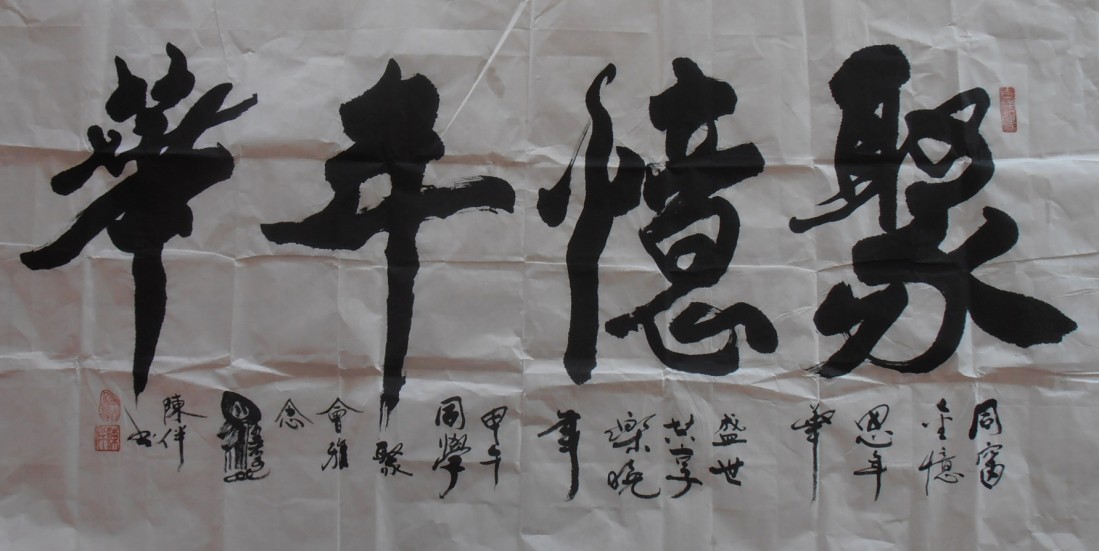 聚憶年華
同窗
金憶
思年
華
盛世
共享
樂晚
年
甲午
同學
聚
會雅
念
陳伴
书